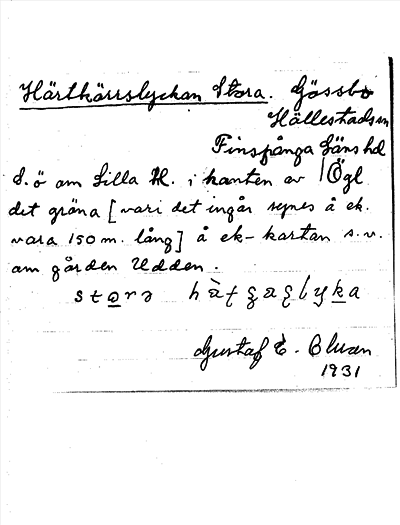 Härtkärrslyckan Stora. Gössbo
Hällestad sn
Finspånga läns hd
S. ö om Lilla H. i kanten av Ögl
det gröna [vari det ingår synes å ek.
vara 150 m. lång] å ek-kartan s.v.
om gården Udden.
Gustaf E.
1931